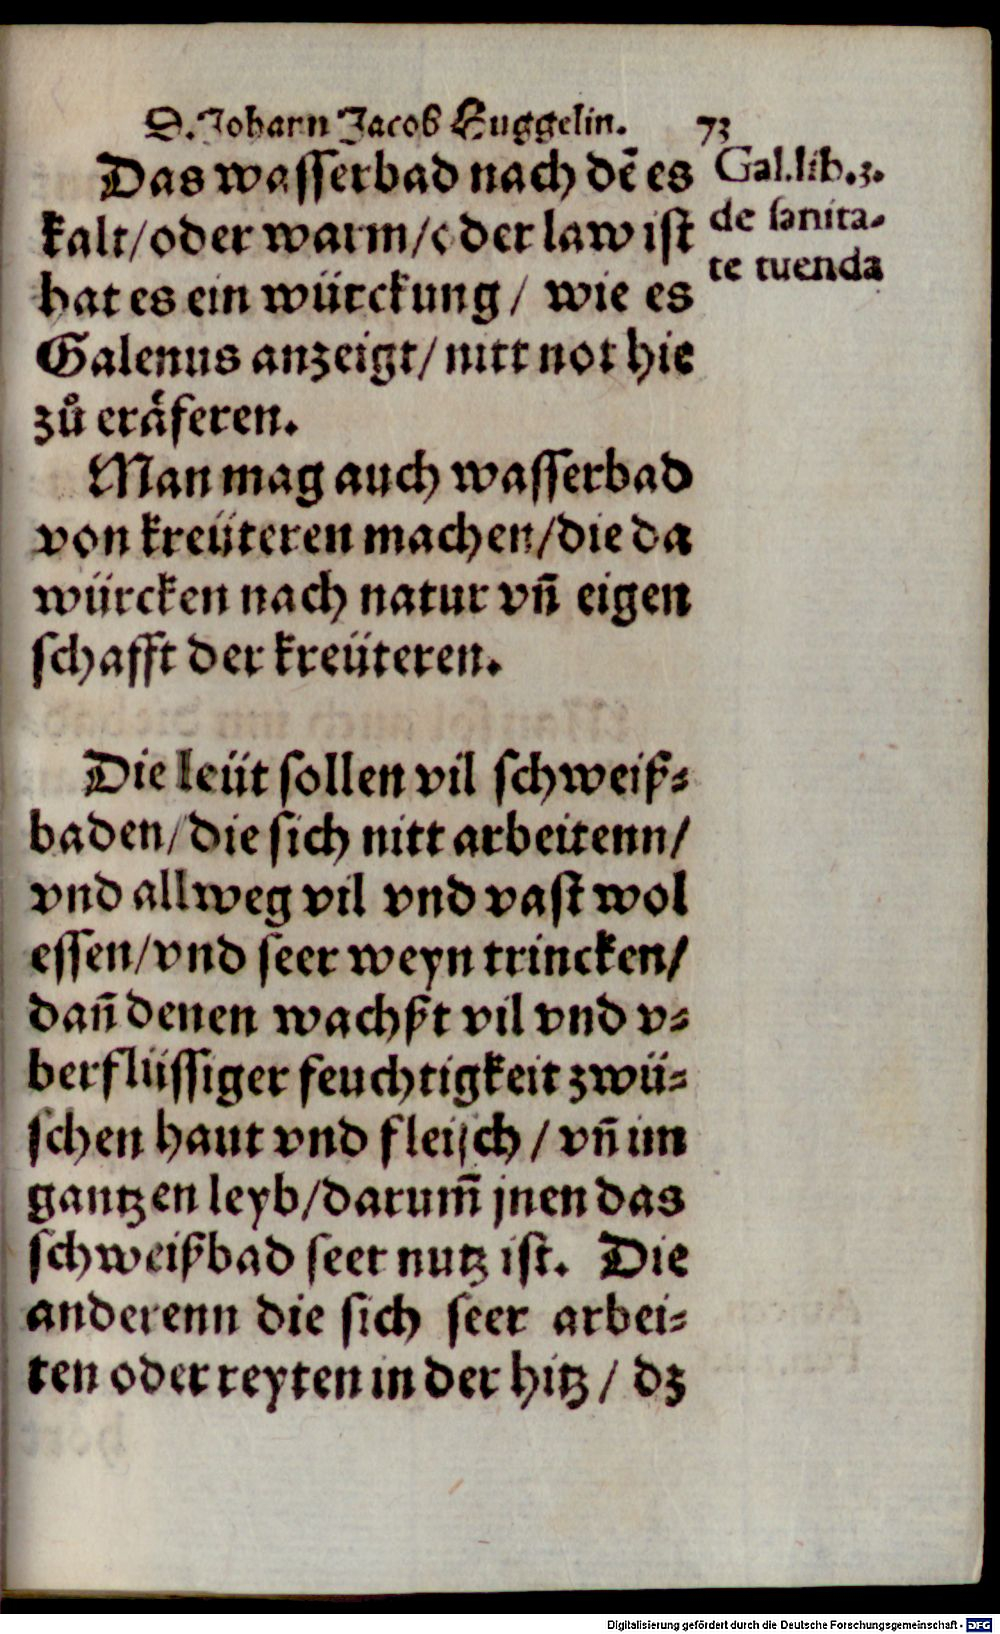 D. Johann Jacob Huggelin. 73
Das wasserbad nach dē es
kalt/oder warm/oder law ist
hat es ein würckung/ wie es
Galenus anzeigt/nitt not hie
zů eräferen.
Gal.lib.3.
de sanita-
te tuenda
Man mag auch wasserbad
von kreüteren machen/die da
würcken nach natur vn̄ eigen
schafft der kreüteren.
Die leüt sollen vil schweiß⸗
baden/die sich nitt arbeitenn/
vnd allweg vil vnd vast wol
essen/vnd seer weyn trincken/
dan̄ denen wachßt vil vnd v⸗
berflüssiger feuchtigkeit zwü⸗
schen haut vnd fleisch/vn̄ im
gantzen leyb/darum̄ jnen das
schweißbad seer nutz ist. Die
anderenn die sich seer arbei⸗
ten oder reyten in der hitz/ dz
Digitalisierung gefördert durch die Deutsche Forschungsgemeinschaft - DFG